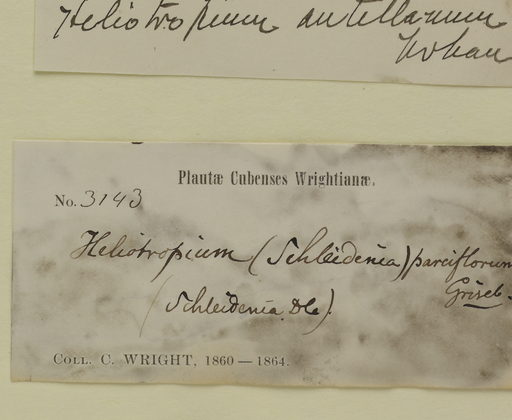 Heliotropium antillanum
Urban
Plantæ Cubenses Wrightianæ.
No. 3143
Heliotropium (Schleidenia) parciflorum
Griseb.
(Schleidenia. Dc).
Coll. C. WRIGHT, 1860 — 1864.